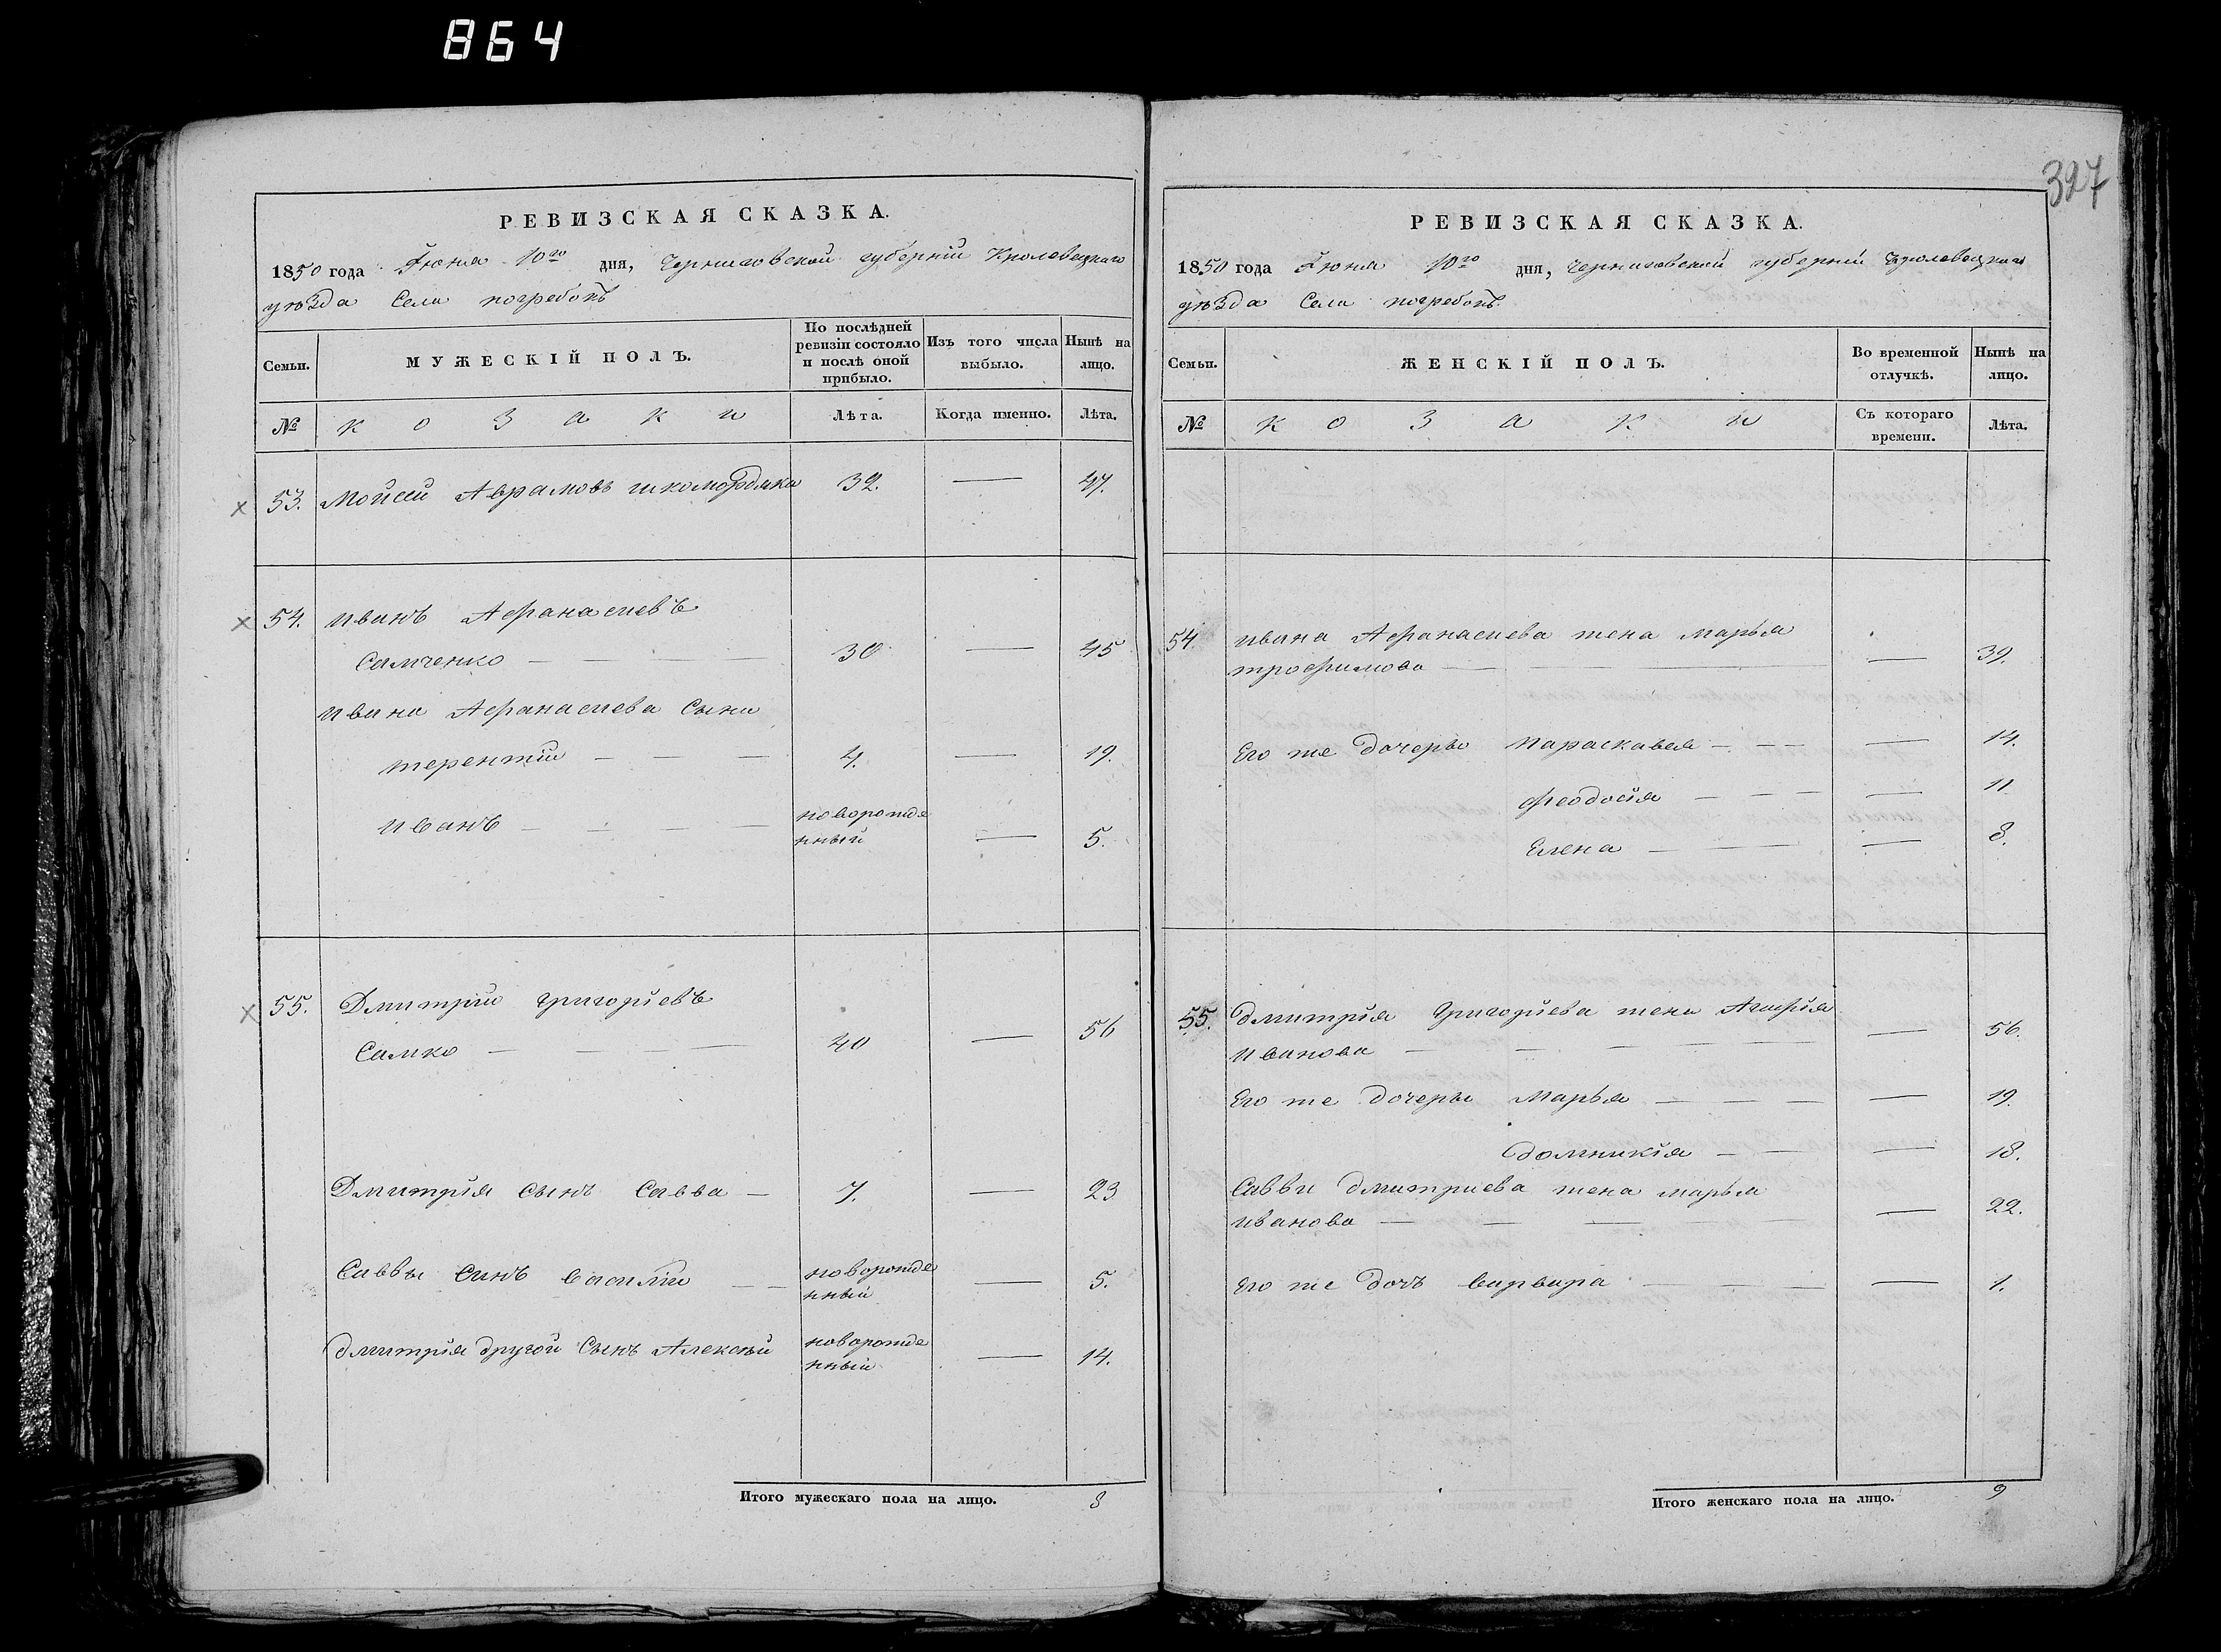 864
РЕВИЗСКАЯ СКАЗКА.
1850 года Іюня 10го дня, Черниговской губерніи Кролевецкаго
уѣзда Села погребокъ
Семьи.
МУЖЕСКІЙ ПОЛЪ.
По послѣдней
ревизіи состояло
и послѣ оной
прибыло.
Изъ того числа
выбыло.
Нынѣ на
лицо.
№
козаки
Лѣта.
Когда именно.
Лѣта.
х 53. Мойсей Аврамовъ 32. — 47.
х 54. иванъ Афанасиевъ
Самченко — — — 30 — 45
ивана Афанасиева Сыни
терентій — — — 4. — 19.
иванъ — — — — новорожде
нный — 5.
х 55. Дмитрій григоріевъ
Самко — — — 40 — 56
Дмитрія сынъ Савва — 7. — 23
Саввы синъ василій — — новорожде
нный — 5.
дмитрія другой Сынъ Алексѣй новорожде
нный — 14.
Итого мужескаго пола на лицо. 8
327
РЕВИЗСКАЯ СКАЗКА.
1850 года Іюня 10го дня, Черниговской губерніи Кролевецкаго
уѣзда Села погребокъ.
Семьи.
ЖЕНСКІЙ ПОЛЪ.
Во временной
отлучкѣ.
Нынѣ на
лицо.
№
козаки
Съ котораго
времени.
Лѣта.
54. ивана Афанасиева жена марья
трофимова — — — 39.
Его же дочеры параскавея — — — — 14.
феодосія — — — — 11
Елена — — — — 8.
55. дмитрія григоріева жена Агафія
иванова — — — — — — 56.
Его же дочеры Марья — — — — 19.
домникія — — — 18.
Савви дмитриева жена марья
иванова — — — — 22.
Его же дочъ варвара — — — — 1.
Итого женскаго пола на лицо. 9